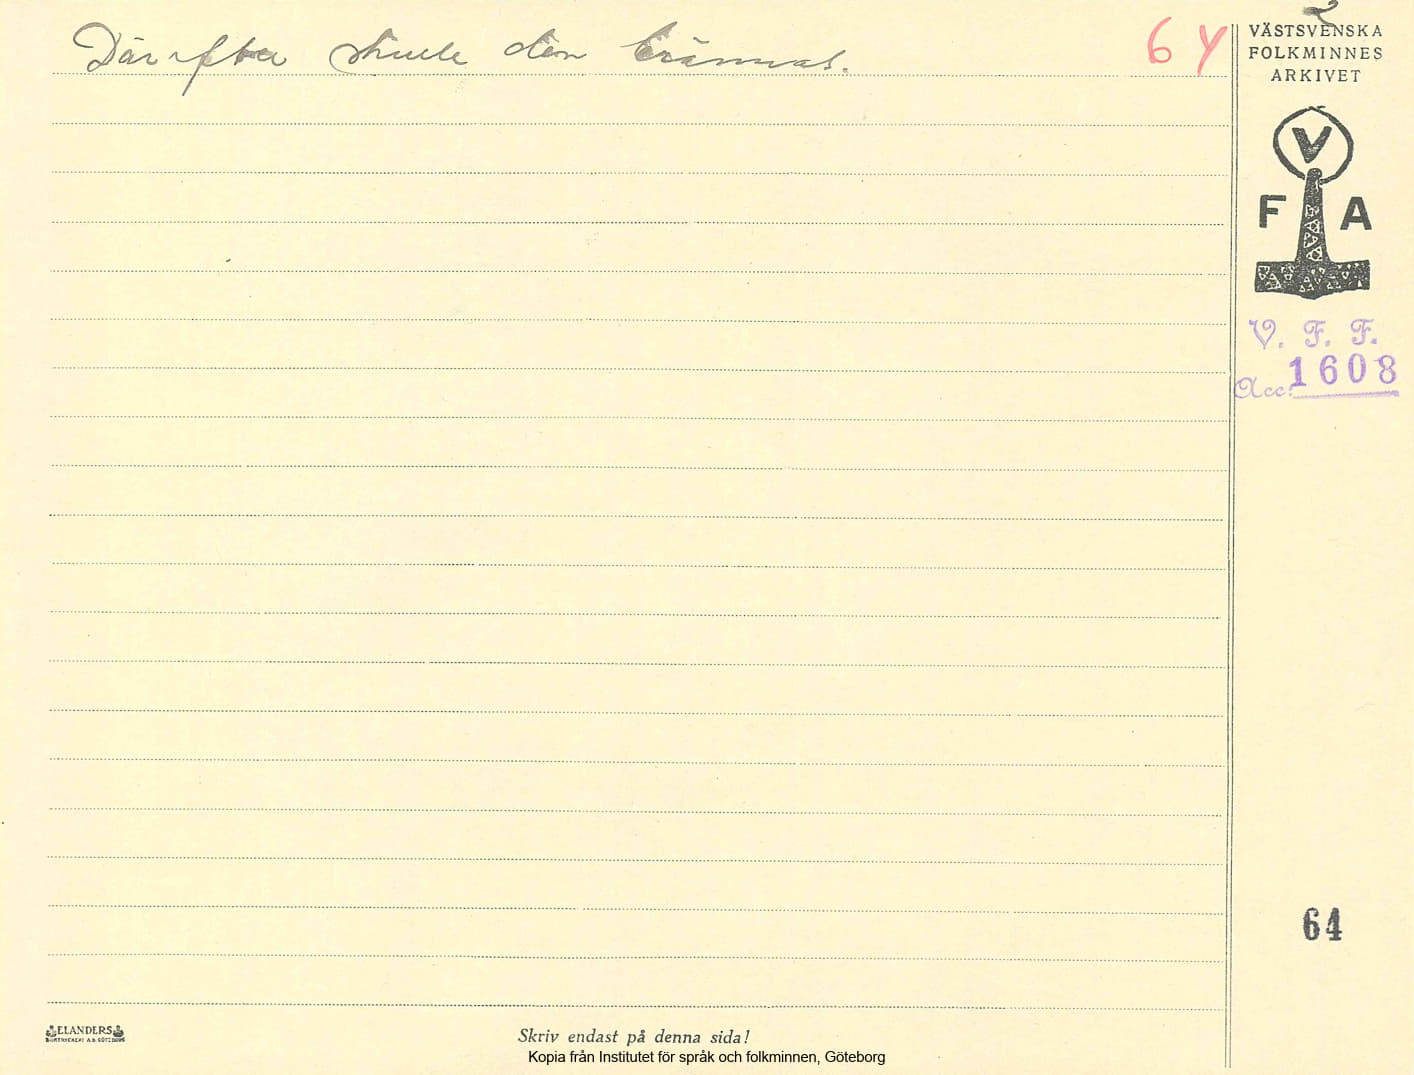 Därefter skulle den brännas.
64
2
VÄSTSVENSKA
FOLKMINNES
ARKIVET
V
F A
V. F. F.
Acc: 1608
64
ELANDERS
BOKTRYCKERI A.B. GÖTEBORG
Skriv endast på denna sida!
Kopia från Institutet för språk och folkminnen, Göteborg